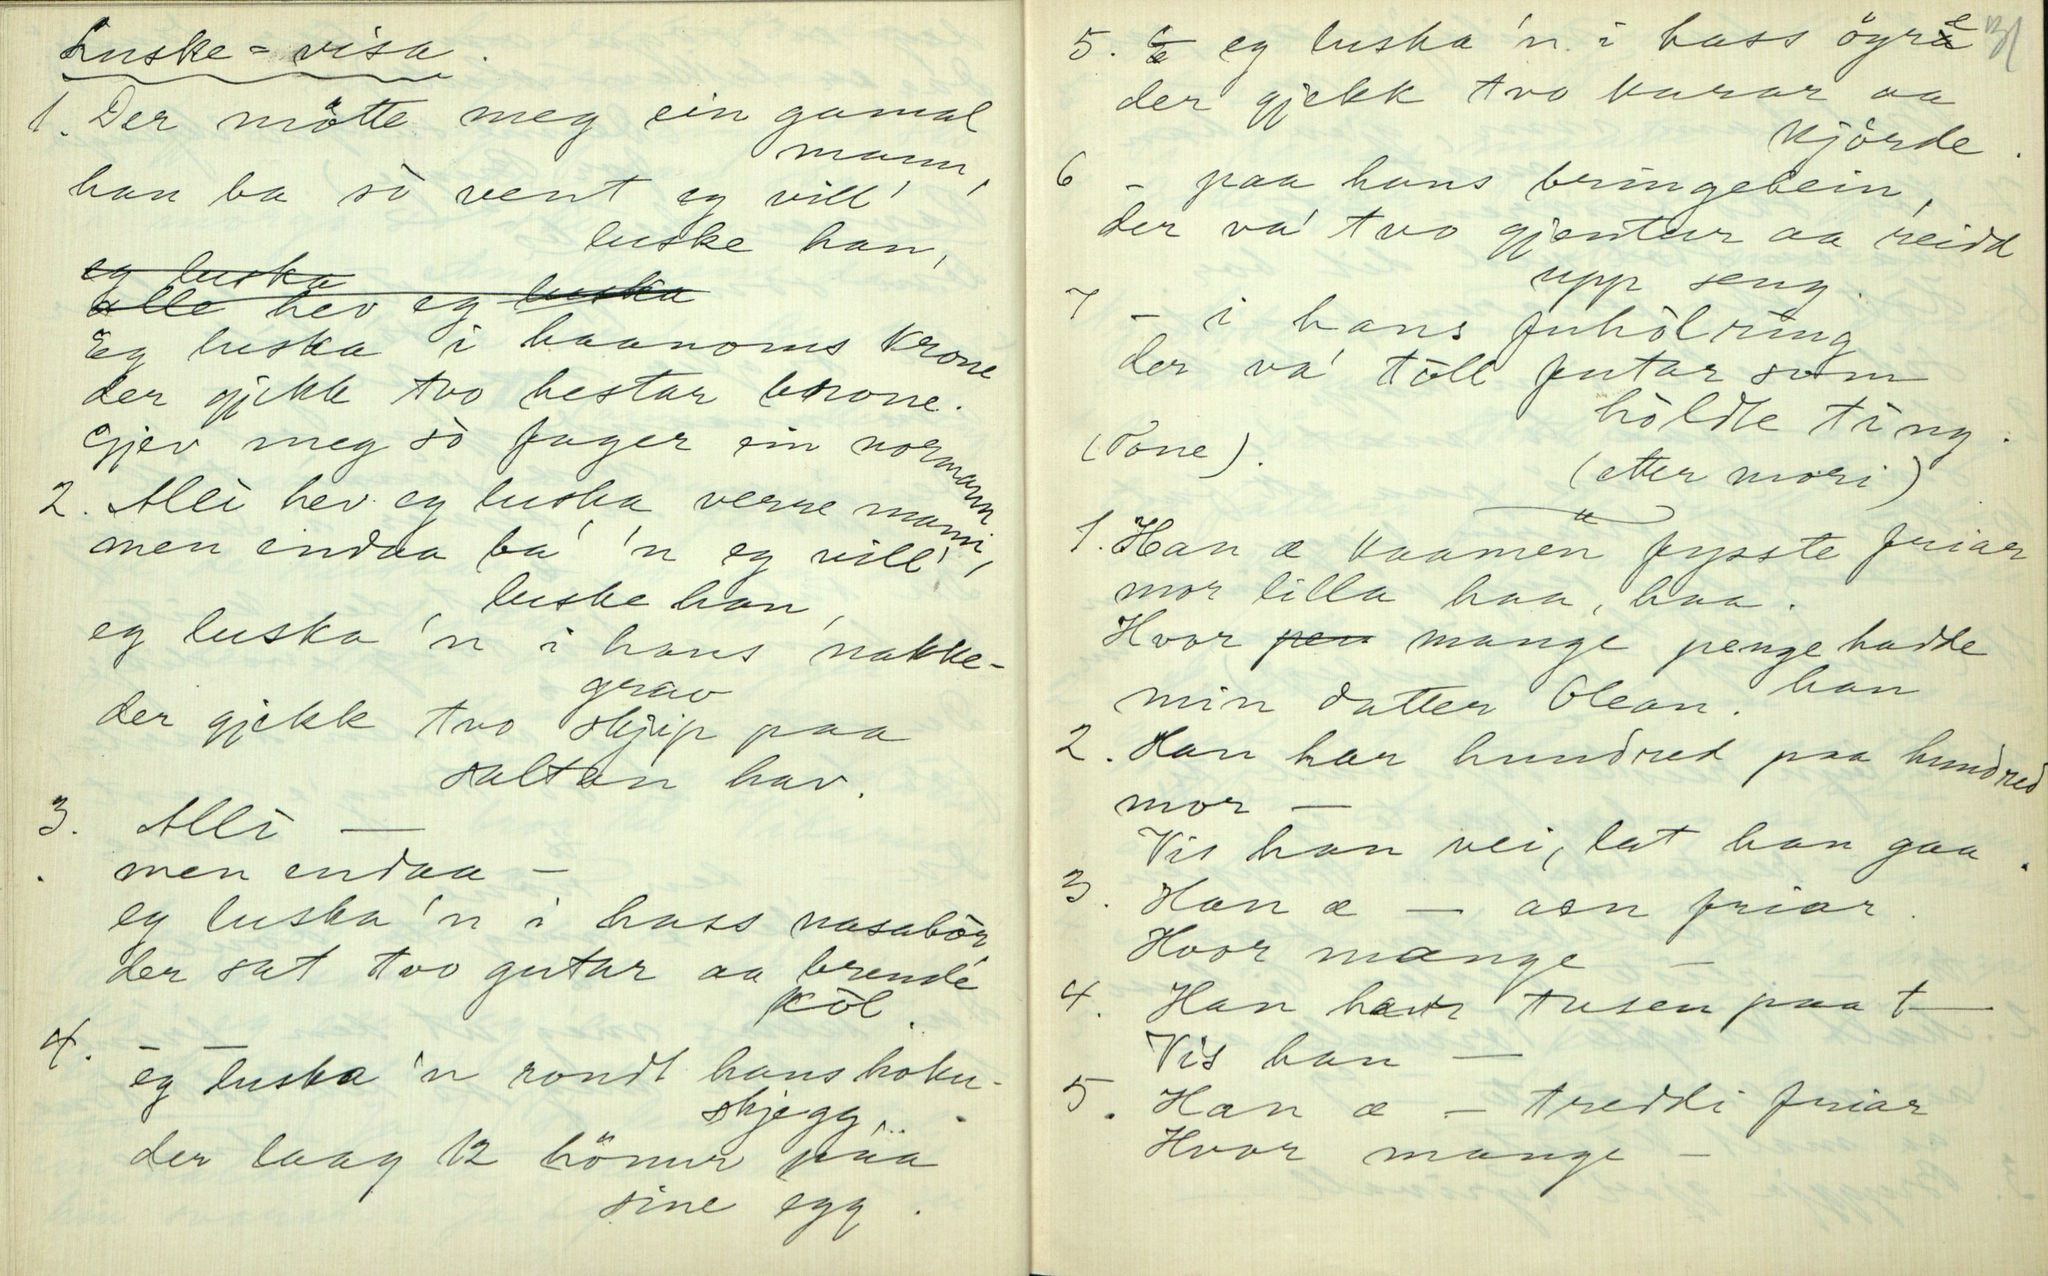 Luske-visa.
1. Der mötte meg ein gamal
mann,
han ba sò vent eg vill'
luske han,
eg luska
alle hev eg luska
Eg luska i haanoms krone
der gjekk tvo hestar brone.
Gjev meg sò fager ein normann
2. Alli hev eg luska verre mann,
men endaa ba' 'n eg vill'
luske han,
eg luska 'n i hans nakke-
grav
der gjekk tvo skjip paa
saltan hav.
3. Alli —
men endaa –
eg luska 'n i hass nasabòr,
der sat tvo gutar aa brende
kòl.
4. – –
eg luska 'n rondt hans hoku-
skjegg,
der laag 12 hönur paa
sine egg.
5. – eg luska 'n i hass öyre
der gjekk tvo karar aa
kjörde.
6 – paa hans bringebein,
der va' tvo gjentur aa reidd
upp seng.
7 – i hans fuhòlring
der va' tòll futar som
höldte ting.
(Tone). (etter mori)
1. Han æ kaamen fysste friar
mor lilla haa, haa.
Hvor pen mange penge hadde
han
min datter Olean.
2. Han har hundred paa hundred
mor —
Vis han vei, lat han gaa.
3. Han æ — aen friar.
Hvor mange –
4. Han har tusen paa t—
Vis han —
5. Han æ – treddi friar
Hvor mange –